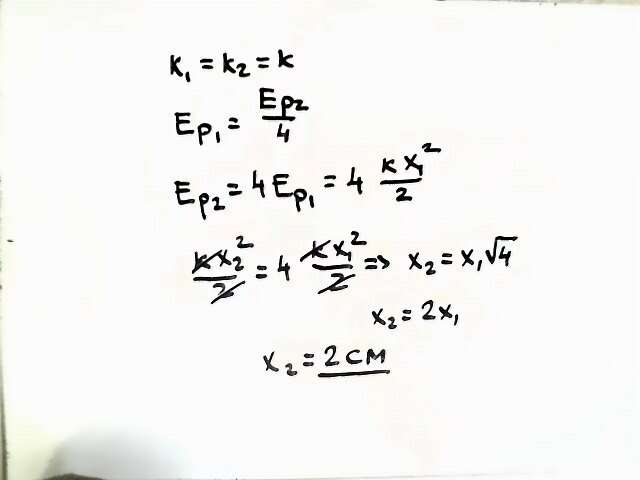 K₁ = K₂ = K
Eₚ₁ = Eₚ₂/4
Eₚ₂ = 4Eₚ₁ = 4 Kx₁²/2
Kx₂²/2 = 4 Kx₁²/2 => x₂ = x₁√4
x₂ = 2x₁
x₂ = 2 см